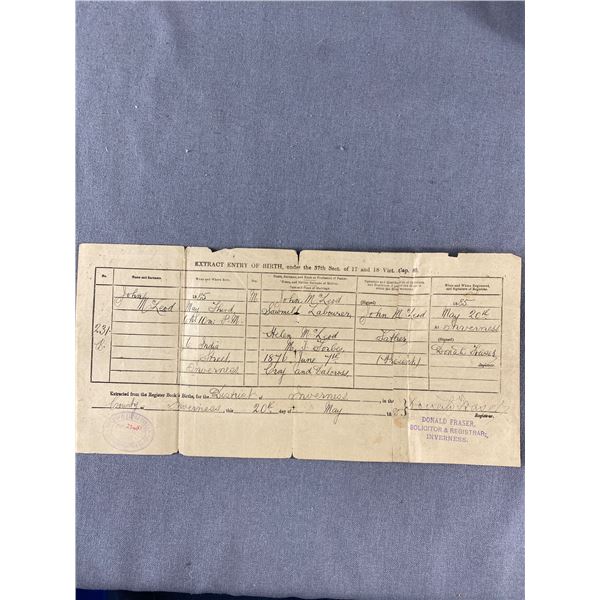 EXTRACT ENTRY OF BIRTH, under the 37th Sect. of 17 and 18 Vict. Cap. 80.
No.
Name and Surname.
When and Where Born.
Sex.
Name, Surname, and Rank or Profession of Father.
Name, and Maiden Surname of Mother.
Date and Place of Marriage.
When and Where Registered, and Signature of Registrar.
231
John
McLeod
1885
May Third
P.M.
6 India
Street
Inverness
M.
John McLeod
Sawmill Labourer
Helen McLeod
M. S. Forbes
1876 June 7th
Croy and Dalcross
(Signed)
John McLeod
Father
(Present)
1885
May 20th
Inverness
(Signed)
Donald Fraser
Registrar.
Extracted from the Register Book of Births, for the District of Inverness in the
County of Inverness, this 20th day of May 1885 Donald Fraser
Registrar.
DONALD FRASER,
SOLICITOR & REGISTRAR,
INVERNESS.